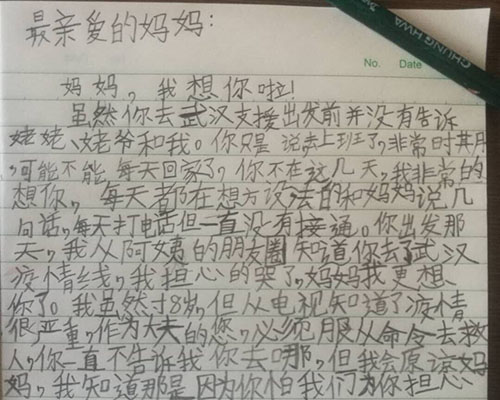 CHUNG HWA
最亲爱的妈妈：
No. Date
妈妈，我想你啦！
虽然你去武汉支援出发前并没有告诉
姥姥、姥爷和我。你只是说去上班了，非常时期
，可能不能每天回家了，你不在这几天，我非常的
想你，每天都在想方设法的和妈妈说几
句话，每天打电话但一直没有接通。你出发那
天，我从阿姨的朋友圈知道你去了武汉
疫情线，我担心的哭了，妈妈我更想
你了。我虽然才8岁，但从电视知道了疫情
很严重，作为大夫的您，必须服从命令去救
人，你一直不告诉我你去哪，但我会原谅妈
妈，我知道那是因为你怕我们为你担心